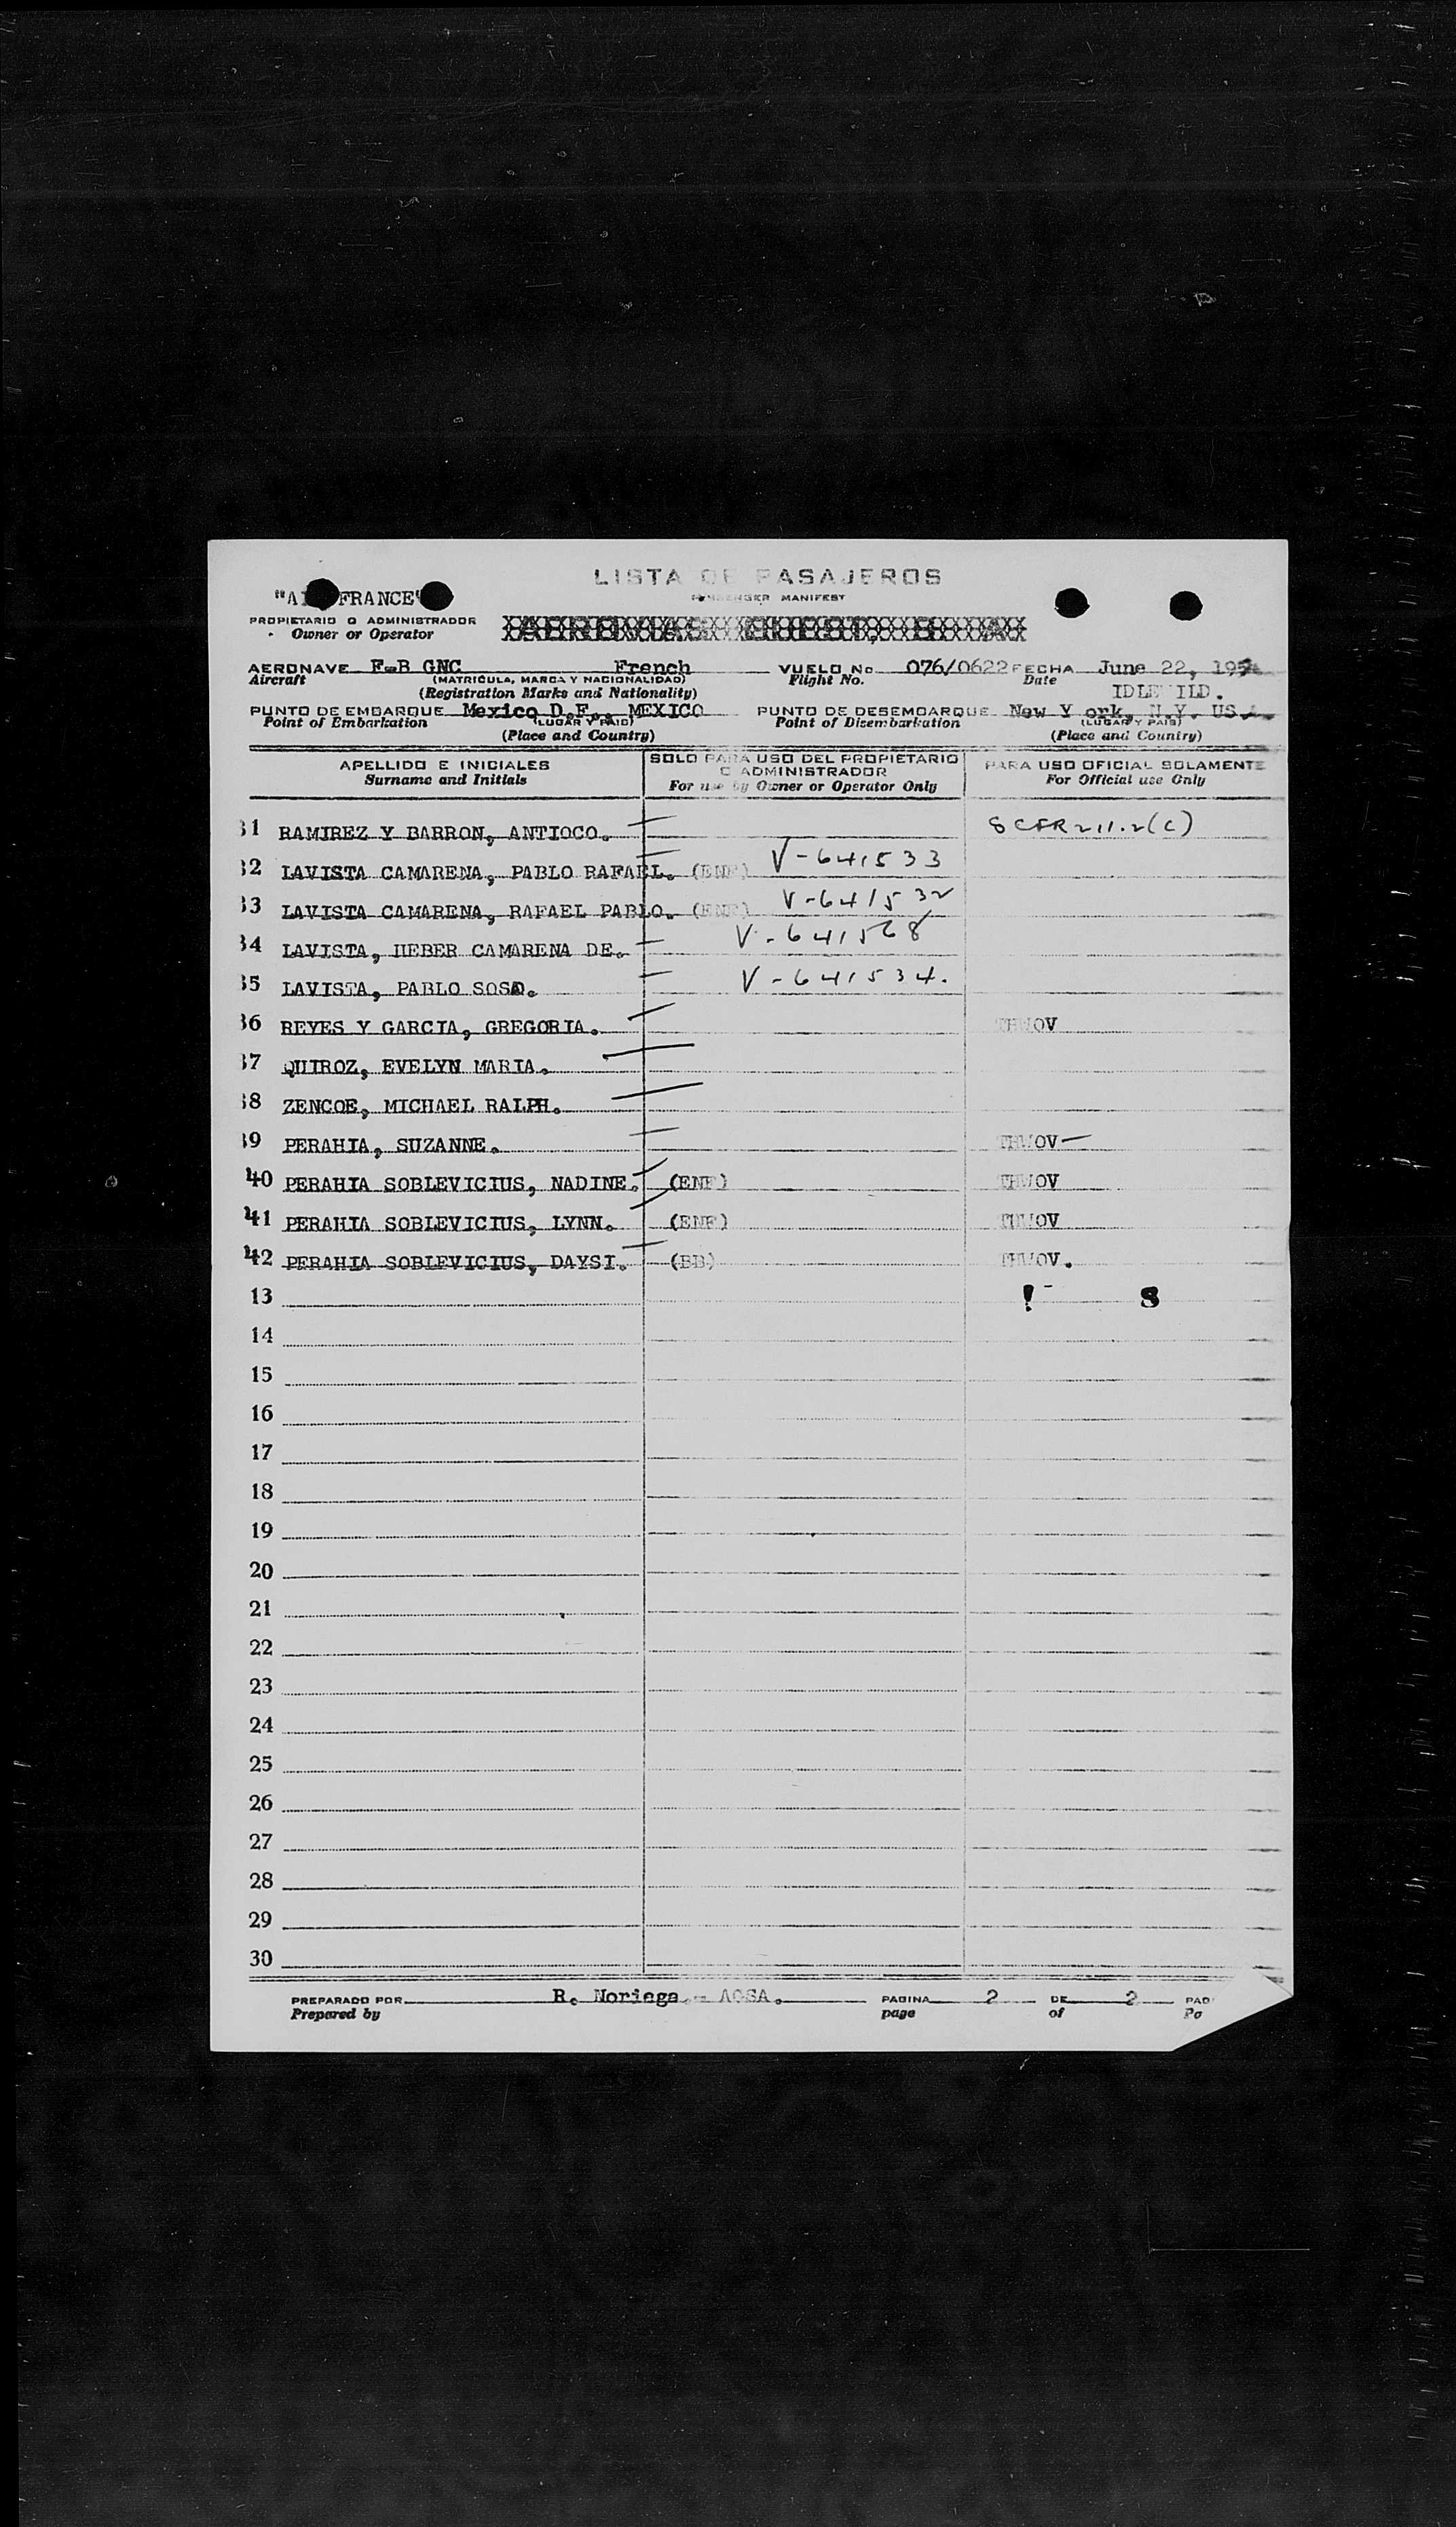 LISTA DE PASAJEROS
PASSENGER MANIFEST
"AIR FRANCE"
PROPIETARIO O ADMINISTRADOR
Owner or Operator
AERONAVE F-B GNC French VUELO No. 076/0622 FECHA June 22, 1954
Aircraft (MATRICULA, MARCA Y NACIONALIDAD) Flight No. Date
(Registration Marks and Nationality) IDLEWILD.
PUNTO DE EMBARQUE Mexico D.F., MEXICO PUNTO DE DESEMBARQUE New Y ork, N.Y. US.A.
Point of Embarkation (LUGAR Y PAIS) Point of Disembarkation (LUGAR Y PAIS)
(Place and Country) (Place and Country)
APELLIDO E INICIALES SOLO PARA USO DEL PROPIETARIO O ADMINISTRADOR PARA USO OFICIAL SOLAMENTE
Surname and Initials For use by Owner or Operator Only For Official use Only
31 RAMIREZ Y BARRON, ANTIOCO. 8 CFR 211.2(C)
32 LAVISTA CAMARENA, PABLO RAFAEL. (ENF) V-641533
33 LAVISTA CAMARENA, RAFAEL PABLO. (ENF) V-641532
34 LAVISTA, HEBER CAMARENA DE. V-641568
35 LAVISTA, PABLO SOSA. V-641534.
36 REYES Y GARCIA, GREGORIA. THWOV
37 QUIROZ, EVELYN MARIA.
38 ZENCOE, MICHAEL RALPH.
39 PERAHIA, SUZANNE. THWOV
40 PERAHIA SOBLEVICIUS, NADINE. (ENF) THWOV
41 PERAHIA SOBLEVICIUS, LYNN. (ENF) THWOV
42 PERAHIA SOBLEVICIUS, DAYSI. (BB) THWOV.
13 ! 8
14
15
16
17
18
19
20
21
22
23
24
25
26
27
28
29
30
PREPARADO POR R. Noriega - AOSA. PAGINA 2 DE 2 PAG
Prepared by page of Pa